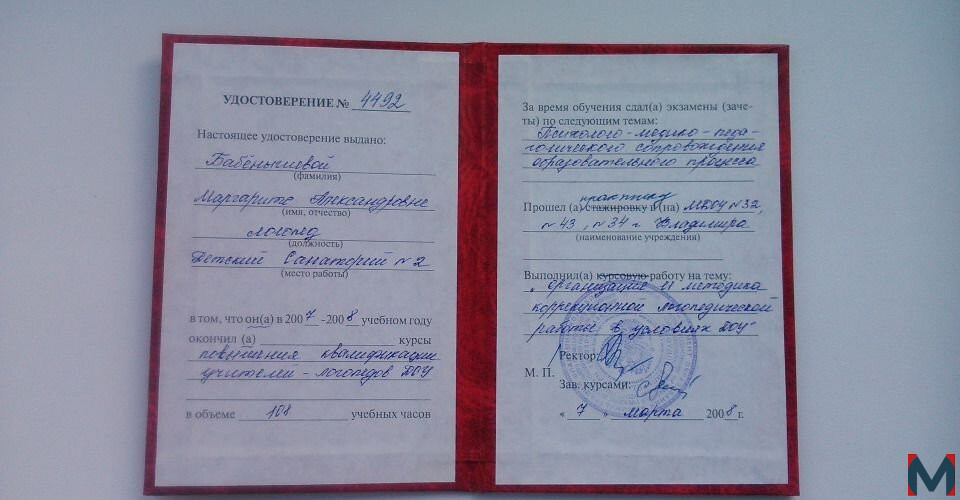 УДОСТОВЕРЕНИЕ № 4492
Настоящее удостоверение выдано:
Бабёнышевой
(фамилия)
Маргарите Александровне
(имя, отчество)
логопед
(должность)
Детский Санаторий №2
(место работы)
в том, что он(а) в 2007 -2008 учебном году
окончил (а) курсы
повышения квалификации
учителей - логопедов ДОУ
в объеме 108 учебных часов
За время обучения сдал(а) экзамены (заче-
ты) по следующим темам:
Психолого - медико - педа-
гогического сопровождения
образовательного процесса
практику
Прошел (а) стажировку в (на) МДОУ №32,
№43, №34 г. Владимира
(наименование учреждения)
Выполнил(а) курсовую работу на тему:
"Организация и методика
коррекционной логопедической
работы в условиях ДОУ"
Ректор:
М. П.
Зав. курсами:
« 7 » марта 2008 г.
М